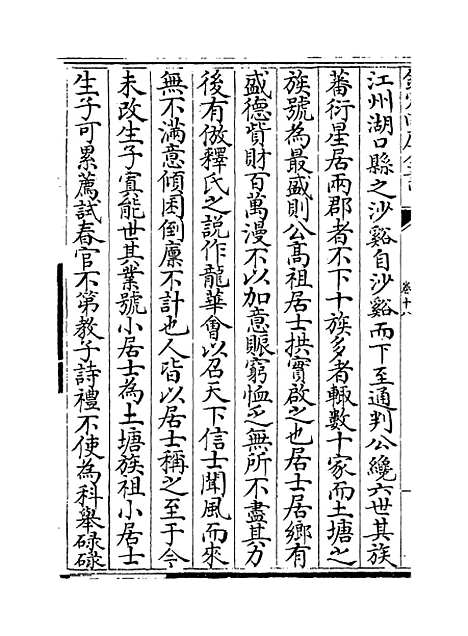 江州湖口縣之沙谿自沙谿而下至通判公纔六世其族
蕃衍星居兩郡者不下十族多者輙數十家而土塘之
族號為最盛則公髙祖居士拱實啟之也居士居鄉有
盛德貲財百萬漫不以加意賑窮恤乏無所不盡其力
後有倣釋氏之說作龍華會以召天下信士聞風而來
無不滿意傾囷倒廩不計也人皆以居士稱之至于今
未改生子寘能世其業號小居士為土塘族祖小居士
生子可累薦試春官不第教子詩禮不使為科舉碌碌
卷十八